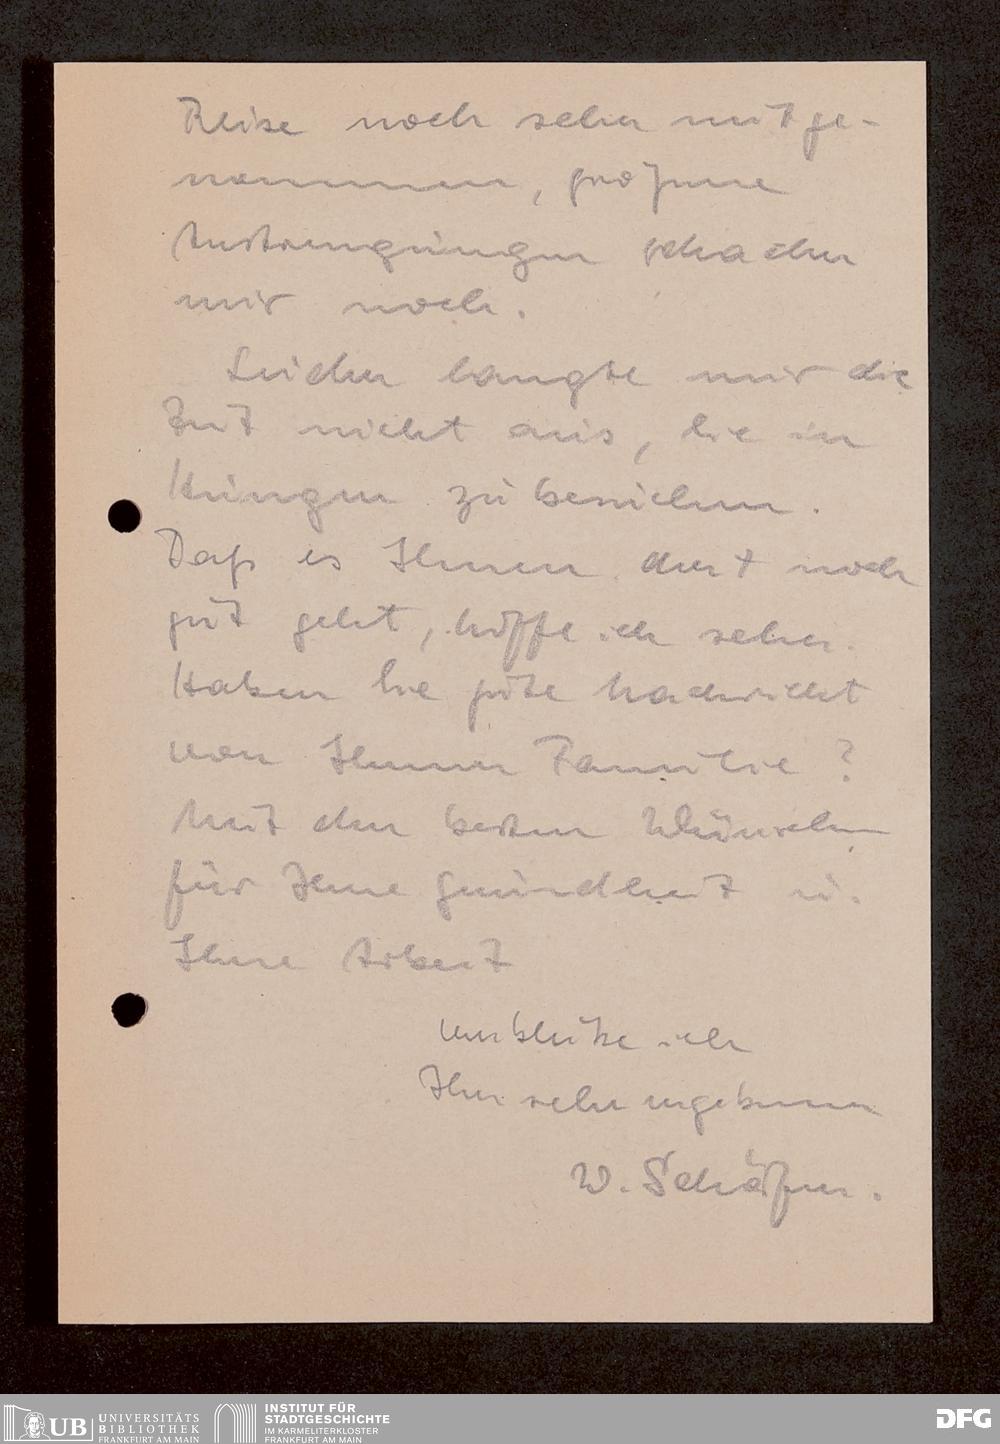 Reise noch sehr mitge-
nommen, größere
Anstrengungen schaden
mir noch.
Leider langte mir die
Zeit nicht aus, Sie in
Hungen zu besuchen.
Daß es Ihnen dort noch
gut geht, hoffe ich sehr.
Haben Sie gute Nachricht
von Ihrer Familie?
Mit den besten Wünschen
für Ihre Gesundheit u.
Ihre Arbeit
verbleibe ich
Ihr sehr ergebener
W. Schäfer.
UB UNIVERSITÄTS
BIBLIOTHEK
FRANKFURT AM MAIN
INSTITUT FÜR
STADTGESCHICHTE
IM KARMELITERKLOSTER
FRANKFURT AM MAIN
DFG